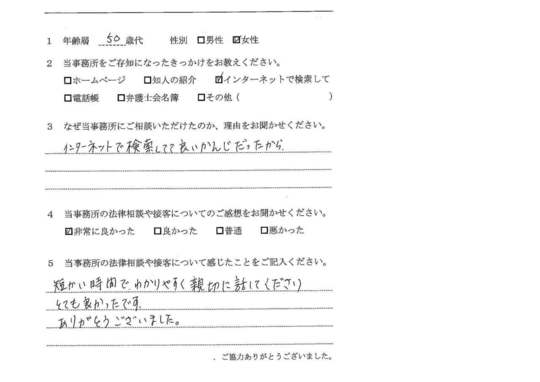 1 年齢層 50 歳代 性別 □男性 ☑女性
2 当事務所をご存知になったきっかけをお教えください。
□ホームページ □知人の紹介 ☑インターネットで検索して
□電話帳 □弁護士会名簿 □その他 ( )
3 なぜ当事務所にご相談いただけたのか、理由をお聞かせください。
インターネットで検索してて良いかんじだったから.
4 当事務所の法律相談や接客についてのご感想をお聞かせください。
☑非常に良かった □良かった □普通 □悪かった
5 当事務所の法律相談や接客について感じたことをご記入ください。
短かい時間で、わかりやすく親切に話してくださり
とても良かったです.
ありがとうございました。
. ご協力ありがとうございました。